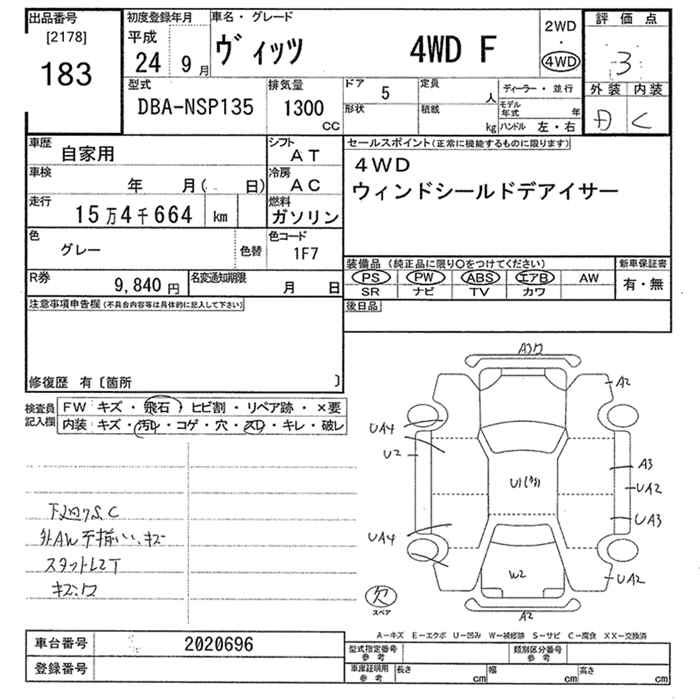 出品番号
[2178]
183
初度登録年月
平成
24 9月
車名・グレード
ヴィッツ 4WD F
2WD
・
4WD
評価点
3
外装 内装
D C
型式
DBA-NSP135
排気量
1300
CC
ドア 5
形状
定員 人
積載 kg
ディーラー・並行
モデル年式 年
ハンドル 左・右
車歴
自家用
シフト
AT
車検
年 月( 日)
冷房
AC
走行
15万4千664 km
燃料
ガソリン
色
グレー
色替
色コード
1F7
R券
9,840円
名変通知期限
月 日
セールスポイント(正常に機能するものに限ります)
4WD
ウィンドシールドデアイサー
装備品 (純正品に限り○をつけてください)
PS PW ABS エアB AW
SR ナビ TV カワ
新車保証書
有・無
後日品
注意事項申告欄(不具合内容等は具体的に記入して下さい)
修復歴 有〔箇所 〕
検査員
記入欄
FW キズ・飛石・ヒビ割・リペア跡・×要
内装 キズ・汚レ・コゲ・穴・スレ・キレ・破レ
下廻りS、C
外AW不揃い、キズ
スタットレスT
キズ、ワ
A3ワ
A2
UA4
U2
A3
UA2
UA3
UA4
UA2
W2
A2
欠
スペア
A-キズ E-エクボ U-凹み W-補修跡 S-サビ C-腐食 XX-交換済
車台番号
2020696
登録番号
型式指定番号
参考
類別区分番号
参考
車庫証明用
参考
長さ cm
幅 cm
高さ cm